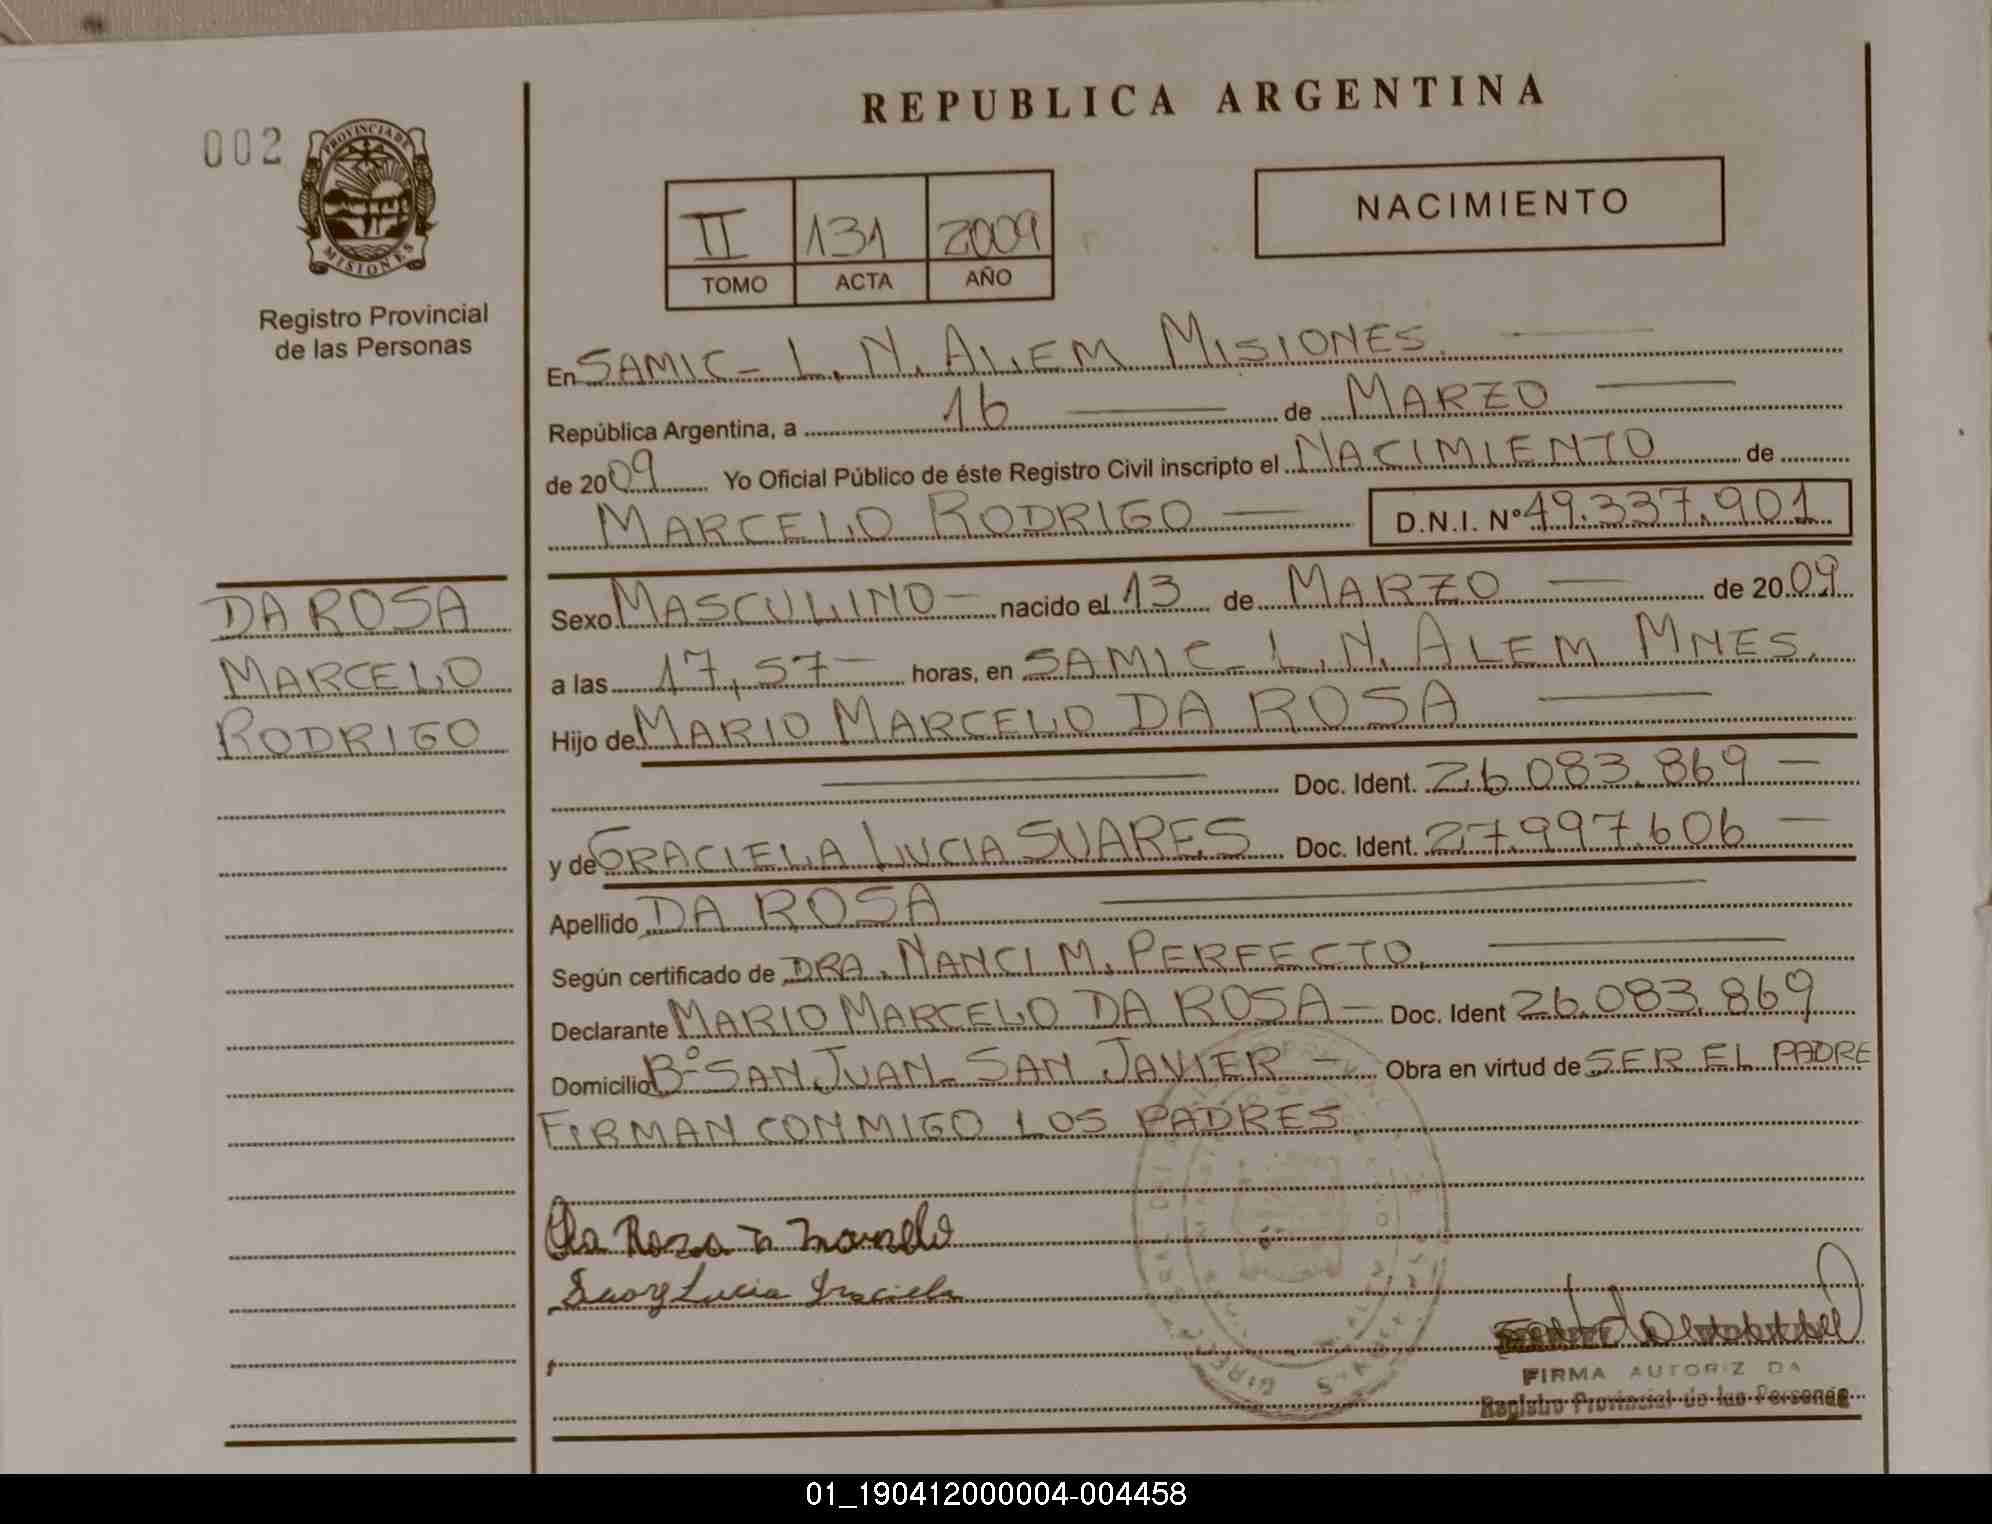 REPUBLICA ARGENTINA
002
PROVINCIA DE
MISIONES
Registro Provincial
de las Personas
II 131 2009
TOMO ACTA AÑO
NACIMIENTO
En SAMIC - L. N. ALEM MISIONES.
República Argentina, a 16 de MARZO
de 2009 Yo Oficial Público de éste Registro Civil inscripto el NACIMIENTO de
MARCELO RODRIGO D.N.I. Nº 49.337.901
DA ROSA
MARCELO
RODRIGO
Sexo MASCULINO - nacido el 13 de MARZO de 2009
a las 17,57 - horas, en SAMIC - L. N. ALEM MNES.
Hijo de MARIO MARCELO DA ROSA
Doc. Ident. 26.083.869 -
y de GRACIELA LUCIA SUARES Doc. Ident. 27.997.606 -
Apellido DA ROSA
Según certificado de DRA. NANCI M. PERFECTO.
Declarante MARIO MARCELO DA ROSA - Doc. Ident 26.083.869
Domicilio Bº SAN JUAN - SAN JAVIER - Obra en virtud de SER EL PADRE
FIRMAN CONMIGO LOS PADRES.
Da Rosa M Marcelo
Lucia Graciela
FIRMA AUTORIZ DA
Registro Provincial de las Personas
01_190412000004-004458